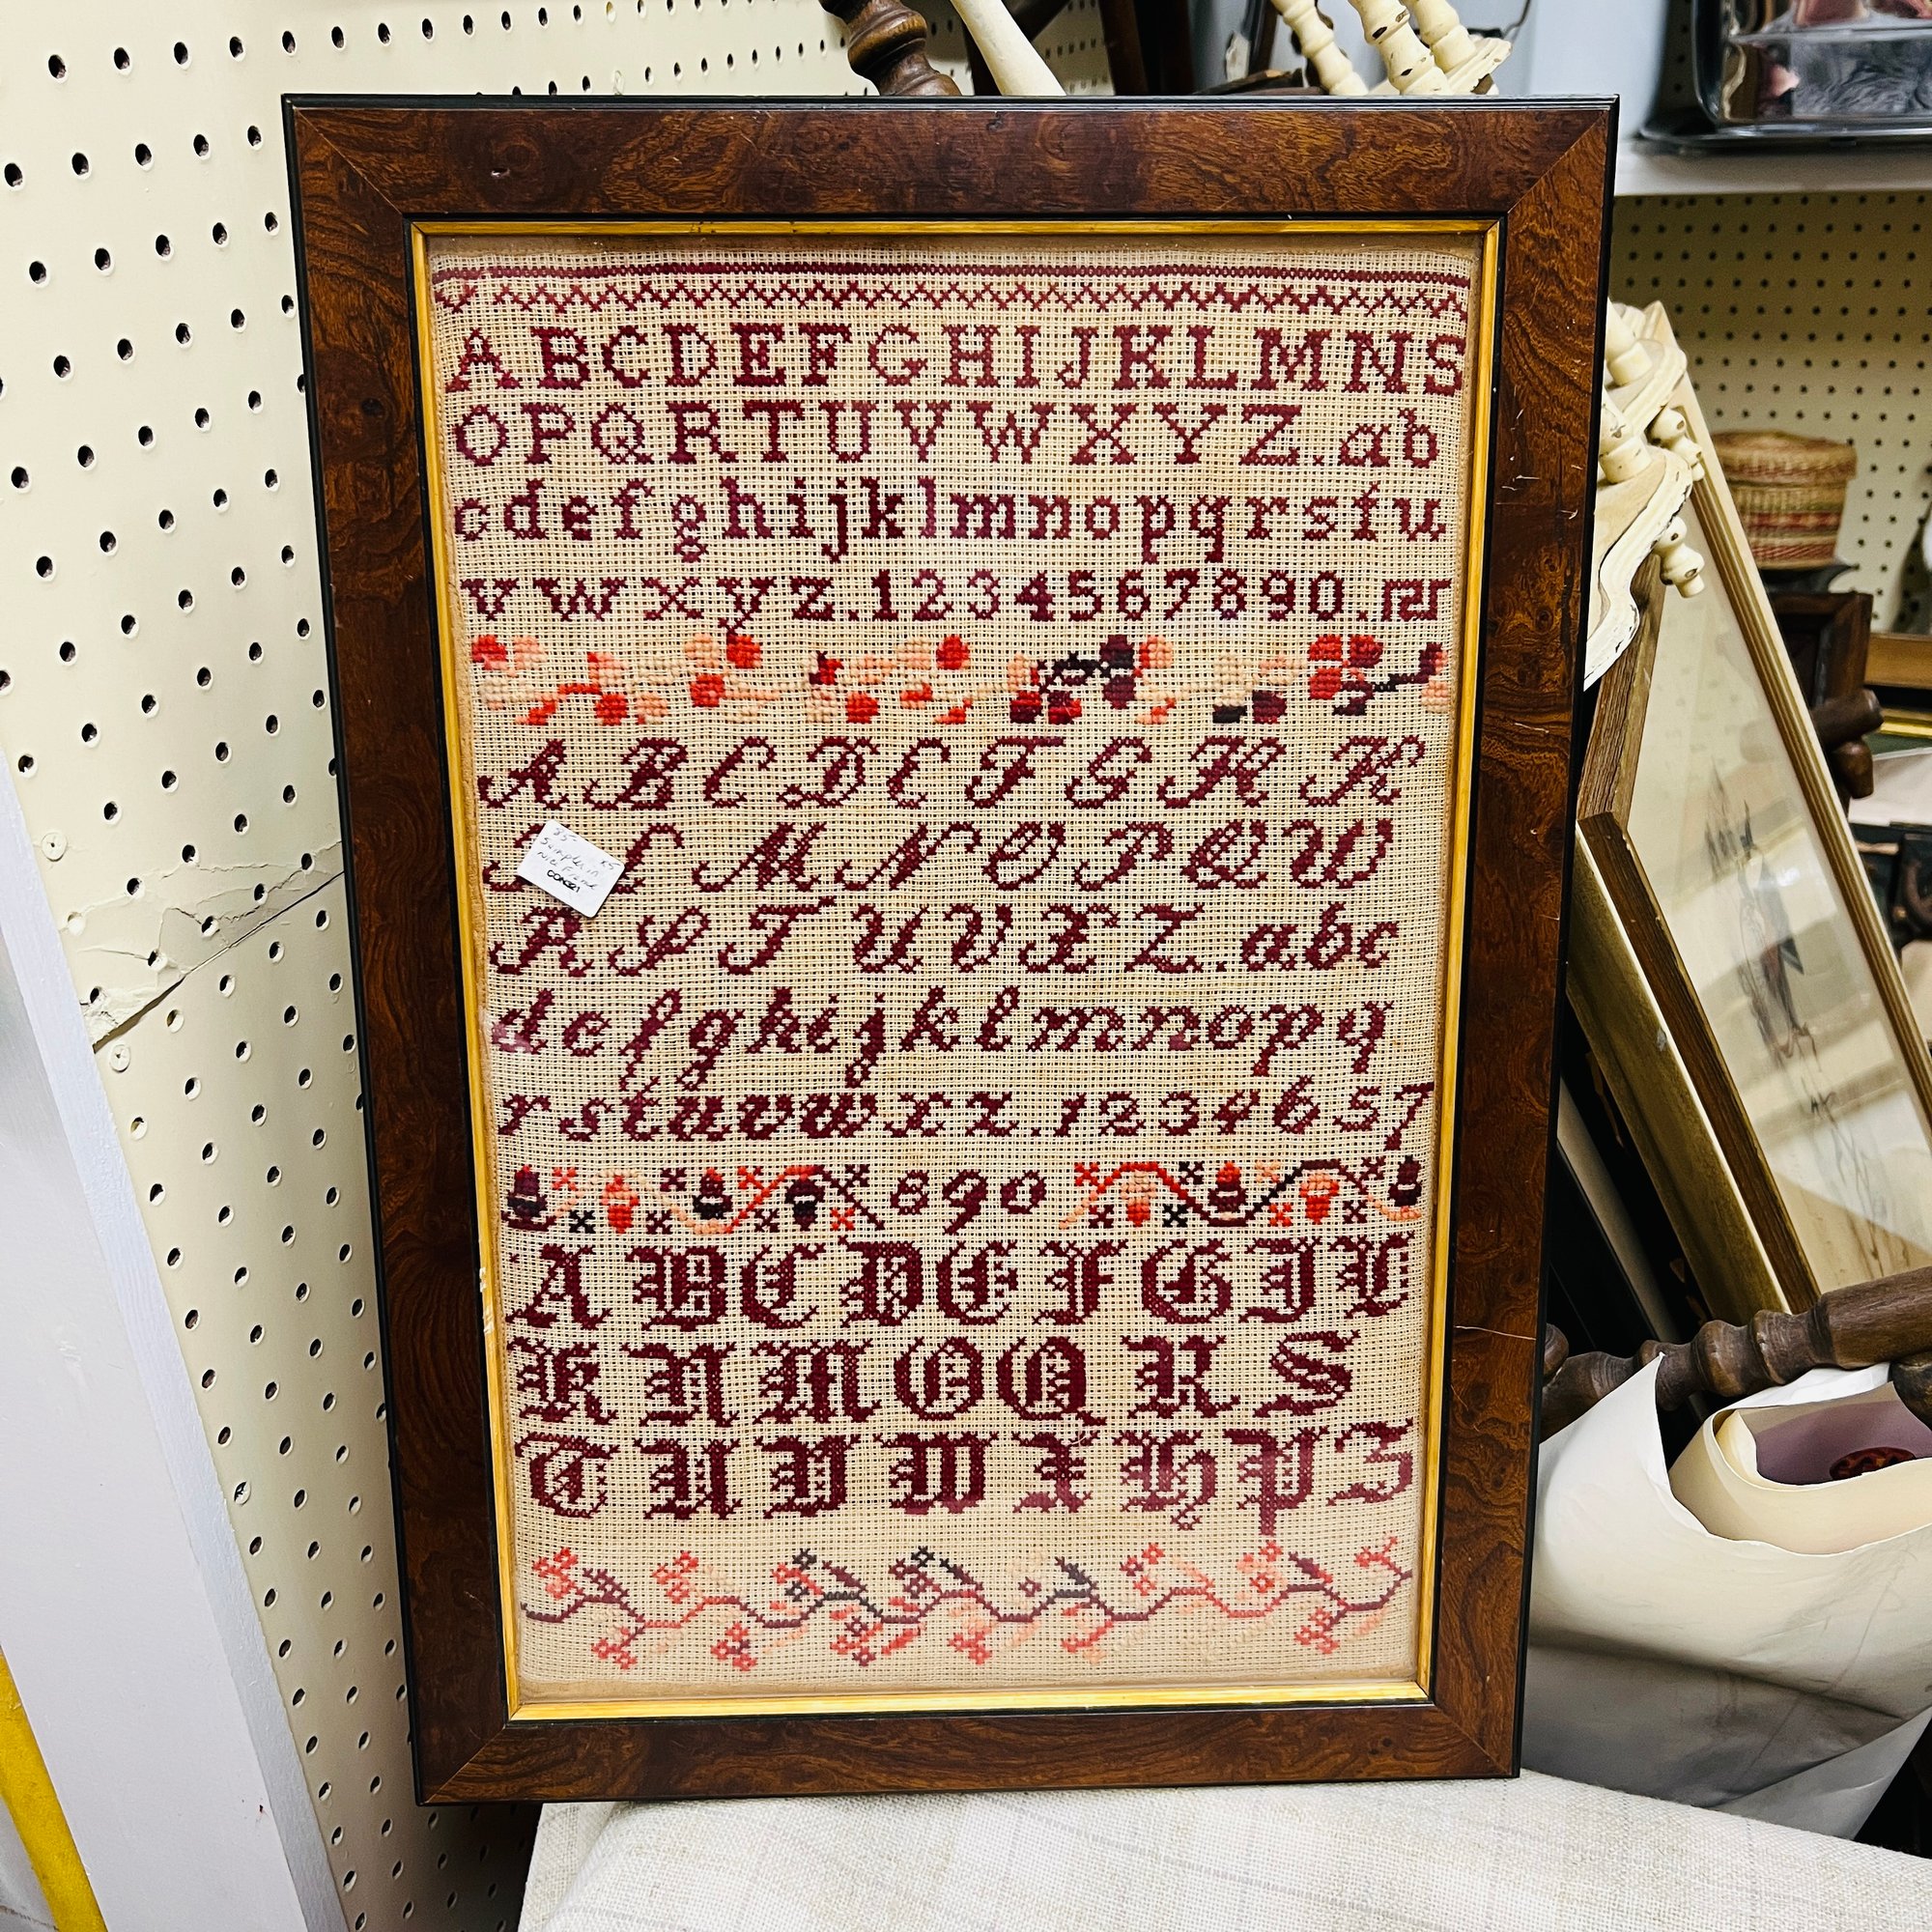 ABCDEFGHIJKLMNS
OPQRTUVWXYZ.ab
cdefghijklmnopqrstu
vwxyz.1234567890.
ABCDEFGHK
L M N O P Q W
R S T U V X Z . a b c
defghijklmnopq
rstuvwxz.1234657
890
ABCDEFGIL
KNMOQRS
TUVWXHPZ